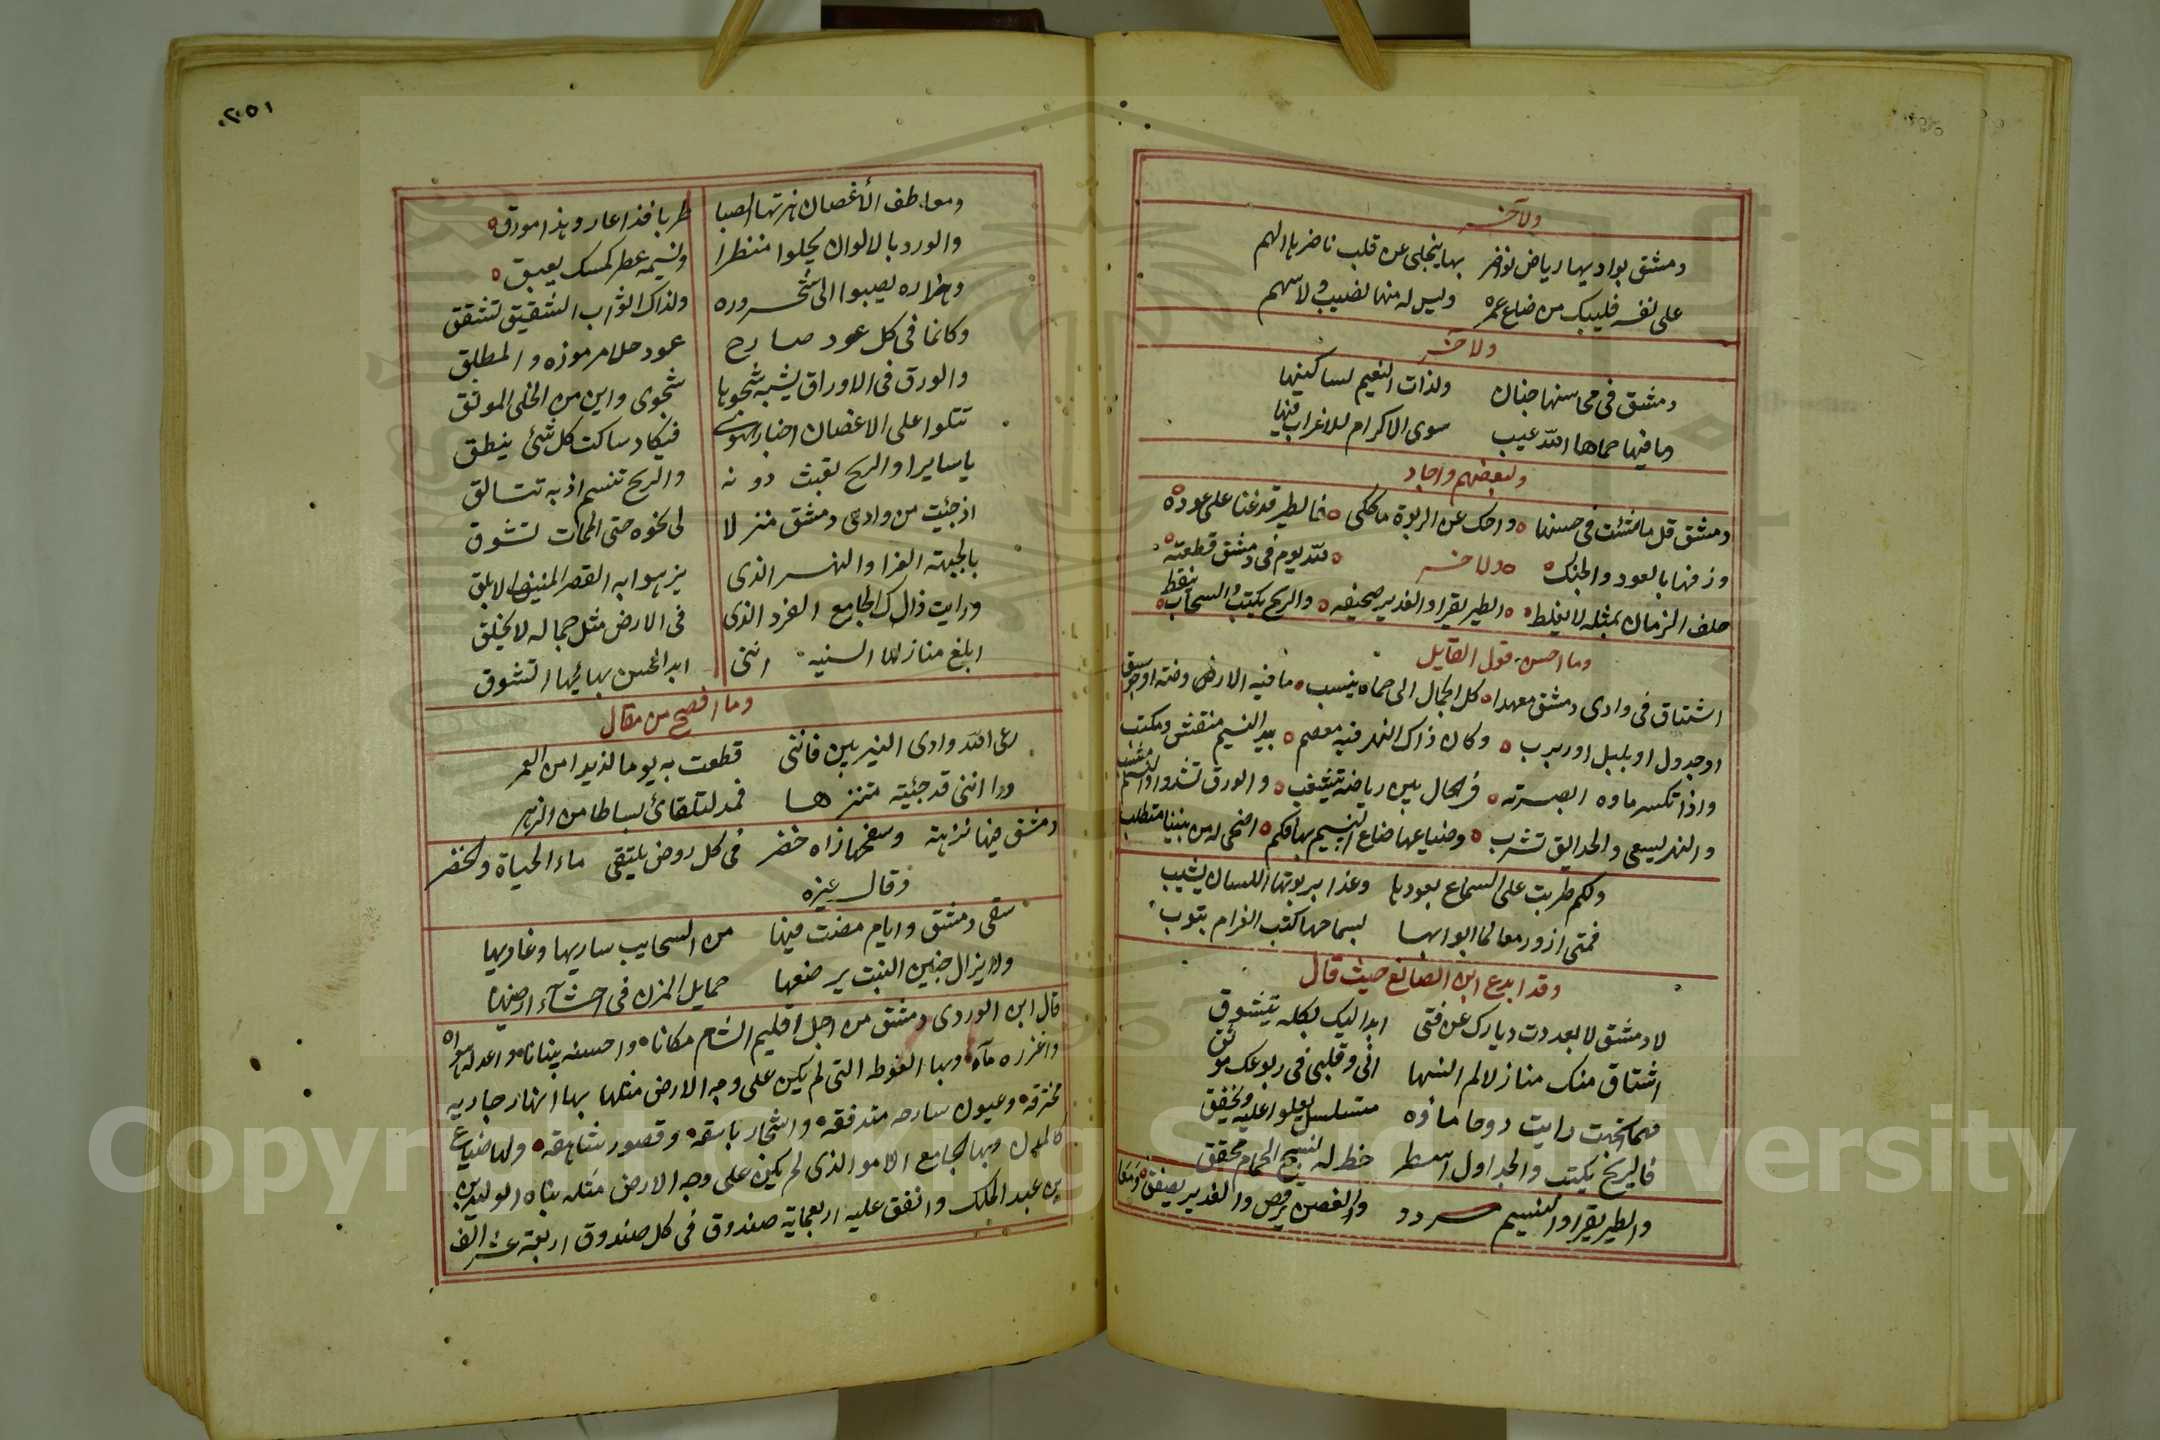 ولآخر
دمشق بواديها رياض نواضر بها ينجلي عن قلب ناضرها الهم
على نفسه فليبك من ضاع عمره وليس له منها نصيب ولا سهم
ولآخر
دمشق في محاسنها جنان ولذات النعيم لساكنيها
وما فيها حماها الله عيب سوى الاكرام للاغراب فيها
ولبعضهم واجاد
دمشق قل ما شئت في حسنها واحك عن الربوة ما تحكي فالطير قد غنا على عوده
وزفها بالعود والجنك ولآخر لله يوم في دمشق قطعته
حلف الزمان بمثله لا يغلط الطير يقرا والغدير صحيفه والريح يكتب والسحاب ينقط
وما احسن قول القايل
اشتاق في وادي دمشق معهدا كل الجمال الى حماه ينسب ما فيه الا روضة او جوسق
او جدول او بلبل او ربرب وكان ذاك النهر فيه معصم بيد النسيم منقش ومكتب
واذا تكسر ماوه ابصرته في الحال بين رياضه يتشعب والورق تشدوا والنسيم مشبب
والنهر يسعى والحدايق تشرب وضياعها ضاع النسيم بها فكم اضحى له من بيننا متطلب
ولكم طربت على السماع بعودها وغدا بربوتها اللسان يشبب
فمتى ازور معالما ابوابها بسماحها كتب الغرام يتوب
وقد ابدع ابن الصائغ حيث قال
لا دمشق لا بعدت ديارك عن فتى ابدا اليك بكله يتشوق
اشتاق منك منازلا لم انسها اني وقلبي في ربوعك موثق
مهما اتجهت رايت دوحا ماؤه متسلسل يعلوا عليه ويخفق
فالريح يكتب والجداول اسطر خط له نسج الحمام محقق
والطير يقرا والنسيم مردد والغصن يرقص والغدير يصفق
ومعا
٢٥١
ومعاطف الأغصان هزتها الصبا طربا فذا عار وهذا مورق
والورد بالالوان يجلوا منظرا ونسيمه عطر كمسك يعبق
وهزاره يصبوا الى شحروره ولذاك اثواب الشقيق تشقق
وكانما في كل عود صادح عود حلا مرموزه والمطلق
والورق في الاوراق يشبه شجوها شجوى واين من الخلي الموثق
تتلوا على الاغصان اخبار الهوى فيكاد ساكت كل شئ ينطق
يا سايرا والريح تعبث دونه والريح تنسم اذ به تتالق
اذ جئيت من وادي دمشق منزلا لي نحوه حتى الممات تشوق
بالجبهة الغرا والنهر الذي يزهوا به القصر المنيف الابلق
ورايت ذاك الجامع الفرد الذي في الارض مثل جماله لا يخلق
ابلغ منازلها السنيه انني ابدا لحسن بهائها اتشوق
وما افصح من مقال
رعى الله وادي النيربين فانني قطعت به يوما لذيدا من العمر
درا انني قد جئيته متنزها فمد لتلقائ بساطا من الزهر
دمشق فيها نزهة وسفحها زاه خضر في كل روض يلتقي ماء الحياة والخضر
وقال غيره
سقى دمشق وايام مضت فيها من السحايب ساريها وغاديها
ولا يزال جنين النبت يرضعها حمايل المزن في احشآء ارضيها
قال ابن الوردي دمشق من اجل اقليم الشام مكانا واحسنه بنيانا واعدله هواه
واغزره مآه وبها الغوطه التي لم يكن على وجه الارض مثلها بها انهار جاريه
مخترقه وعيون سارحه متدفقه واشجار باسقه وقصور شاهقه ولها ضياع
كالمدن وبها الجامع الاموي الذي لم يكن على وجه الارض مثله بناه الوليد بن
بن عبد الملك وانفق عليه اربعماية صندوق في كل صندوق اربعة عشر الف
Copyright © King Saud University